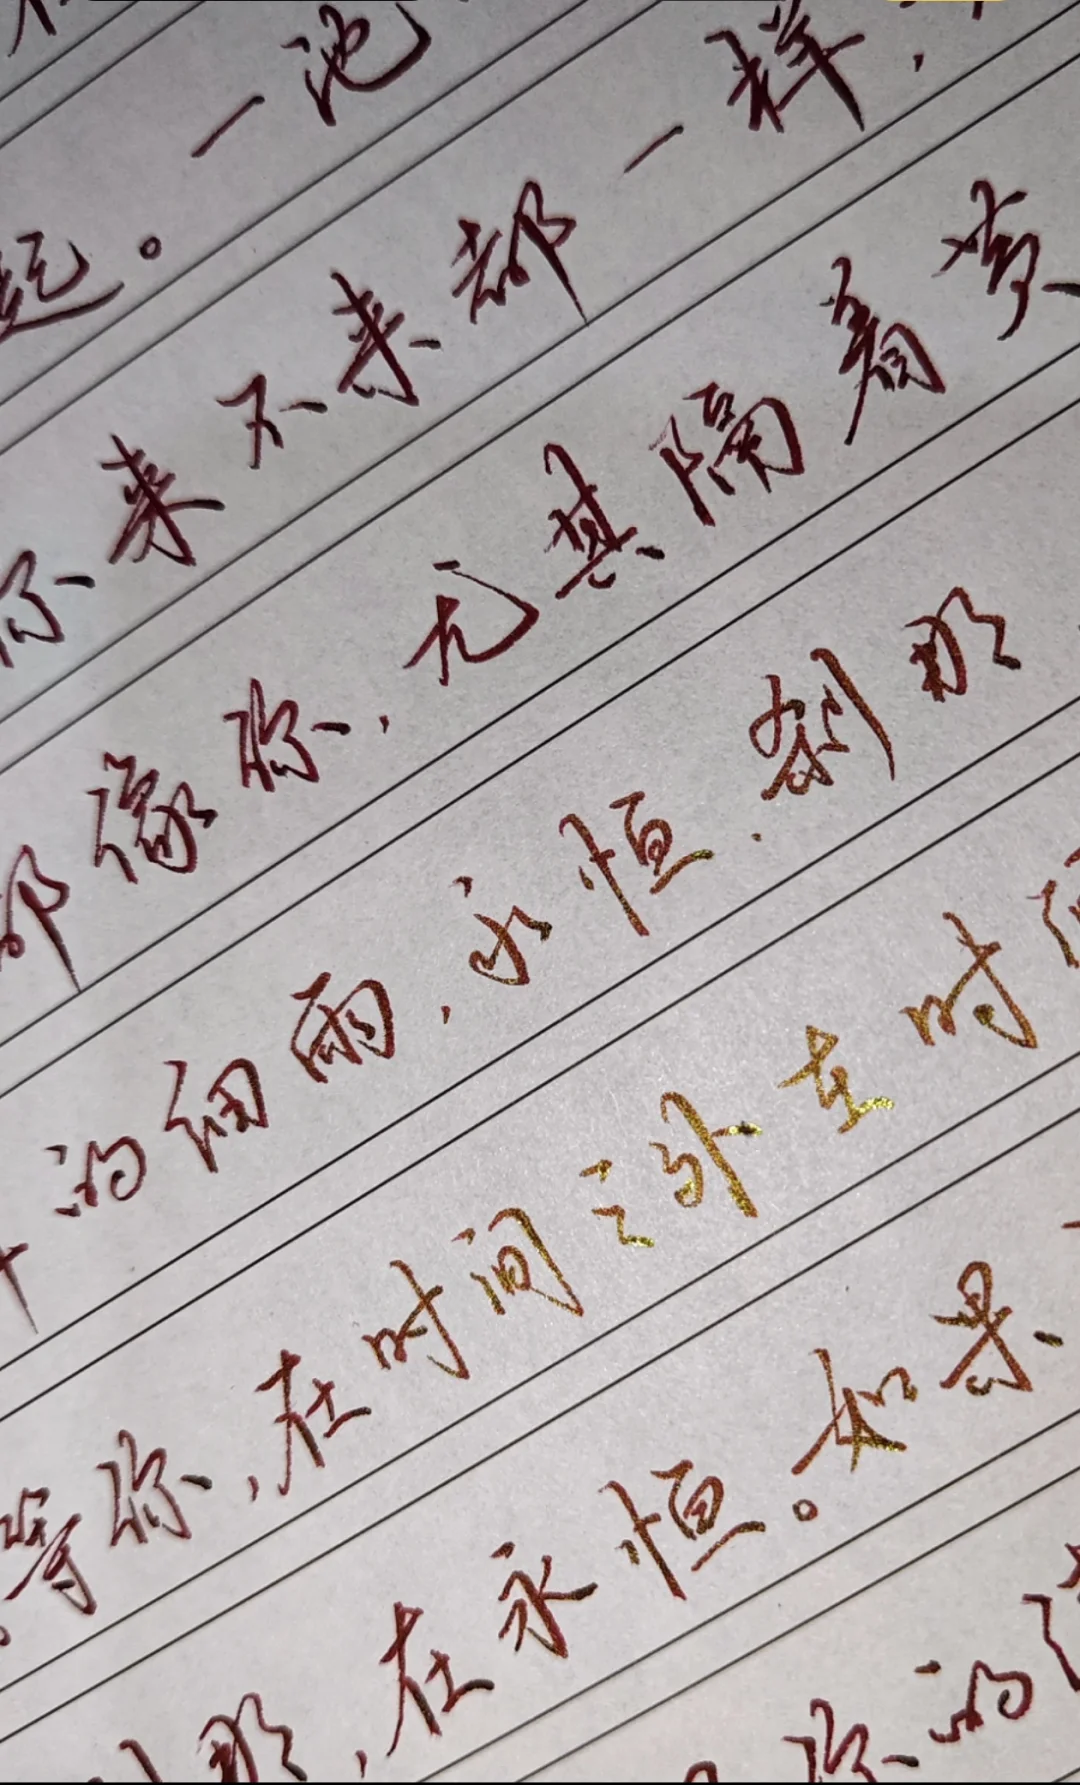 起。一池
你来不来都一样,
都像你,尤其隔着黄
的细雨,永恒.刹那
等你,在时间之外在时
那,在永恒。如果
你的